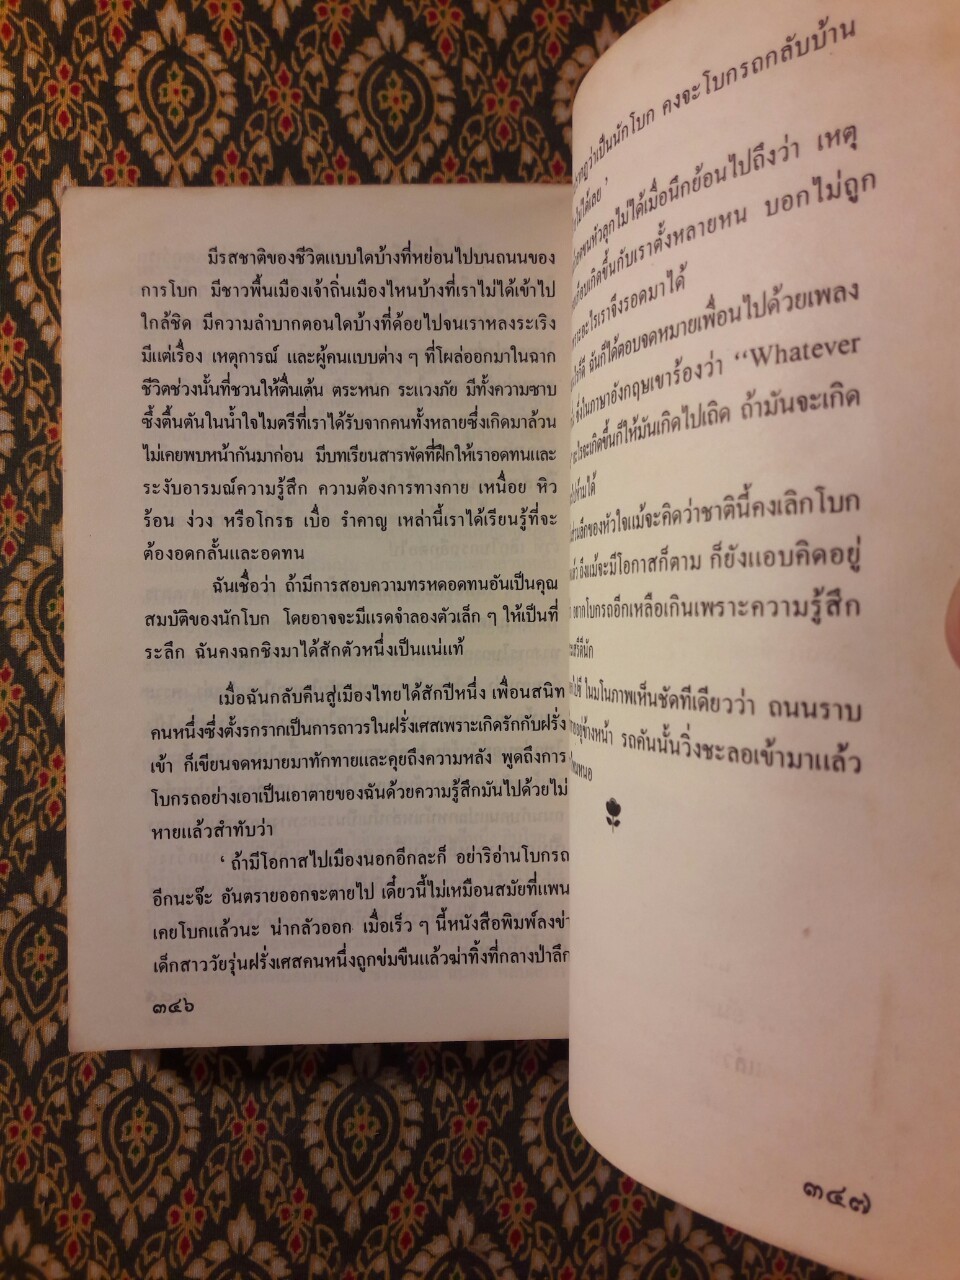 มีรสชาติของชีวิตแบบใดบ้างที่หย่อนไปบนถนนของ
การโบก มีชาวพื้นเมืองเจ้าถิ่นเมืองไหนบ้างที่เราไม่ได้เข้าไป
ใกล้ชิด มีความลำบากตอนใดบ้างที่ด้อยไปจนเราหลงระเริง
มีแต่เรื่อง เหตุการณ์ และผู้คนแบบต่าง ๆ ที่โผล่ออกมาในฉาก
ชีวิตช่วงนั้นที่ชวนให้ตื่นเต้น ตระหนก ระแวงภัย มีทั้งความซาบ
ซึ้งตื้นตันในน้ำใจไมตรีที่เราได้รับจากคนทั้งหลายซึ่งเกิดมาล้วน
ไม่เคยพบหน้ากันมาก่อน มีบทเรียนสารพัดที่ฝึกให้เราอดทนและ
ระงับอารมณ์ความรู้สึก ความต้องการทางกาย เหนื่อย หิว
ร้อน ง่วง หรือโกรธ เบื่อ รำคาญ เหล่านี้เราได้เรียนรู้ที่จะ
ต้องอดกลั้นและอดทน
ฉันเชื่อว่า ถ้ามีการสอบความทรหดอดทนอันเป็นคุณ
สมบัติของนักโบก โดยอาจจะมีแรดจำลองตัวเล็ก ๆ ให้เป็นที่
ระลึก ฉันคงฉกชิงมาได้สักตัวหนึ่งเป็นแน่แท้
เมื่อฉันกลับคืนสู่เมืองไทยได้สักปีหนึ่ง เพื่อนสนิท
คนหนึ่งซึ่งตั้งรกรากเป็นการถาวรในฝรั่งเศสเพราะเกิดรักกับฝรั่ง
เข้า ก็เขียนจดหมายมาทักทายและคุยถึงความหลัง พูดถึงการ
โบกรถอย่างเอาเป็นเอาตายของฉันด้วยความรู้สึกมันไปด้วยไม่
หายแล้วสำทับว่า
‘ ถ้ามีโอกาสไปเมืองนอกอีกละก็ อย่าริอ่านโบกรถ
อีกนะจ๊ะ อันตรายออกจะตายไป เดี๋ยวนี้ไม่เหมือนสมัยที่แพน
เคยโบกแล้วนะ น่ากลัวออก เมื่อเร็ว ๆ นี้หนังสือพิมพ์ลงข่า
เด็กสาววัยรุ่นฝรั่งเศสคนหนึ่งถูกข่มขืนแล้วฆ่าทิ้งที่กลางป่าลึก
๓๔๖
ว่าเป็นนักโบก คงจะโบกรถกลับบ้าน
ไม่ได้เลย ’
ขนหัวลุกไม่ได้เมื่อนึกย้อนไปถึงว่า เหตุ
เกิดขึ้นกับเราตั้งหลายหน บอกไม่ถูก
อะไรเราจึงรอดมาได้
ฉันก็ได้ตอบจดหมายเพื่อนไปด้วยเพลง
ซึ่งในภาษาอังกฤษเขาร้องว่า “Whatever
อะไรจะเกิดขึ้นก็ให้มันเกิดไปเถิด ถ้ามันจะเกิด
ห้ามได้
ลึกของหัวใจแม้จะคิดว่าชาตินี้คงเลิกโบก
ถึงแม้จะมีโอกาสก็ตาม ก็ยังแอบคิดอยู่
อยากโบกรถอีกเหลือเกินเพราะความรู้สึก
ในมโนภาพเห็นชัดทีเดียวว่า ถนนราบ
อยู่ข้างหน้า รถคันนั้นวิ่งชะลอเข้ามาแล้ว
๓๔๗